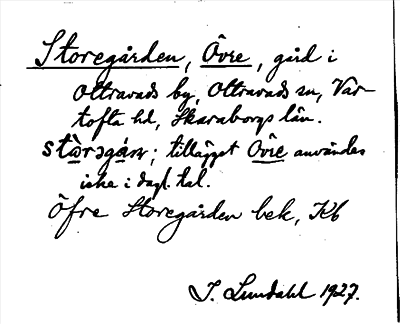 Storegården, Övre, gård i
Ottravads by, Ottravads sn, Var-
tofta hd, Skaraborgs län.
stɷ̀rəgɑ́ɳ; tillägget Övre användes
icke i dagl. tal.
Öfre Storegården bek, Kb
I. Lundahl 1927.